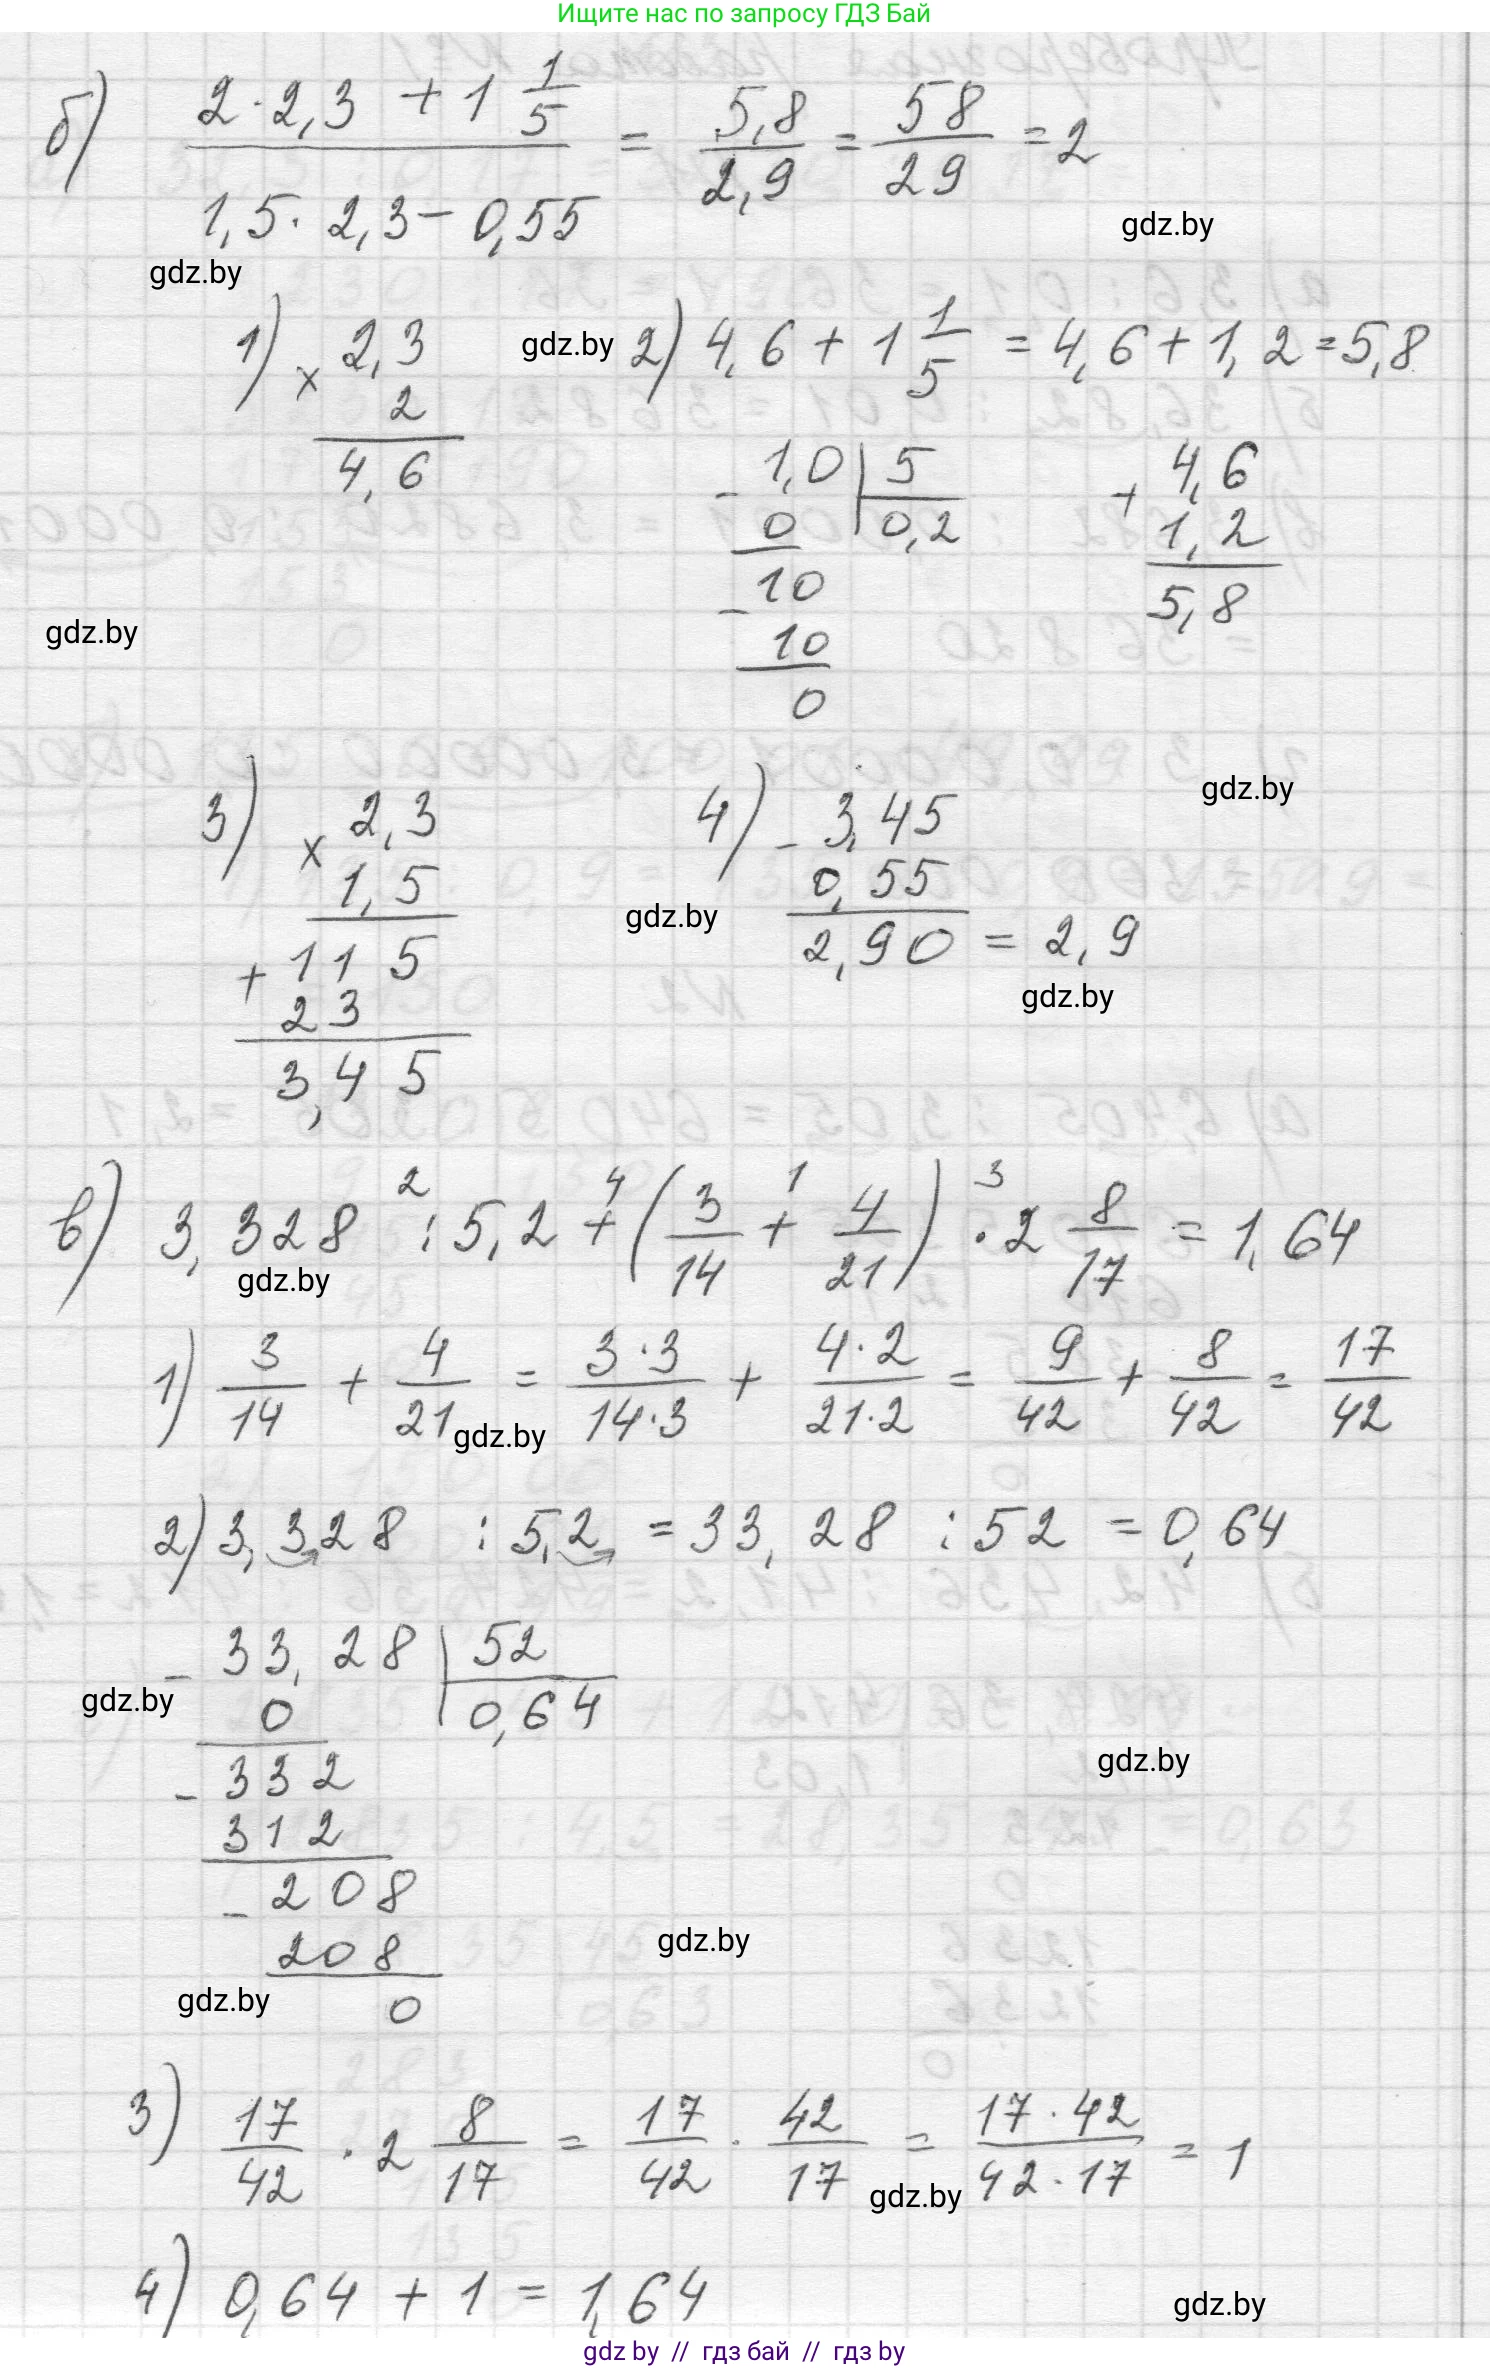 Ищите нас по запросу ГДЗ Бай
б) (2 · 2,3 + 1 1/5) / (1,5 · 2,3 − 0,55) = 5,8/2,9 = 58/29 = 2
gdz.by
gdz.by
1) × 2,3
2
4,6
gdz.by
2) 4,6 + 1 1/5 = 4,6 + 1,2 = 5,8
− 1,0 | 5
0 | 0,2
− 10
10
0
+ 4,6
1,2
5,8
gdz.by
gdz.by
3) × 2,3
1,5
+ 115
23
3,45
4) − 3,45
0,55
2,90 = 2,9
gdz.by
gdz.by
в) 3,328 :² 5,2 +⁴ (3/14 +¹ 4/21) ·³ 2 8/17 = 1,64
gdz.by
1) 3/14 + 4/21 = 3·3/14·3 + 4·2/21·2 = 9/42 + 8/42 = 17/42
gdz.by
2) 3,328 : 5,2 = 33,28 : 52 = 0,64
− 33,28 | 52
0 | 0,64
− 332
312
− 208
208
0
gdz.by
gdz.by
gdz.by
gdz.by
3) 17/42 · 2 8/17 = 17/42 · 42/17 = 17·42/42·17 = 1
gdz.by
4) 0,64 + 1 = 1,64
gdz.by
gdz by // гдз бай // гдз by